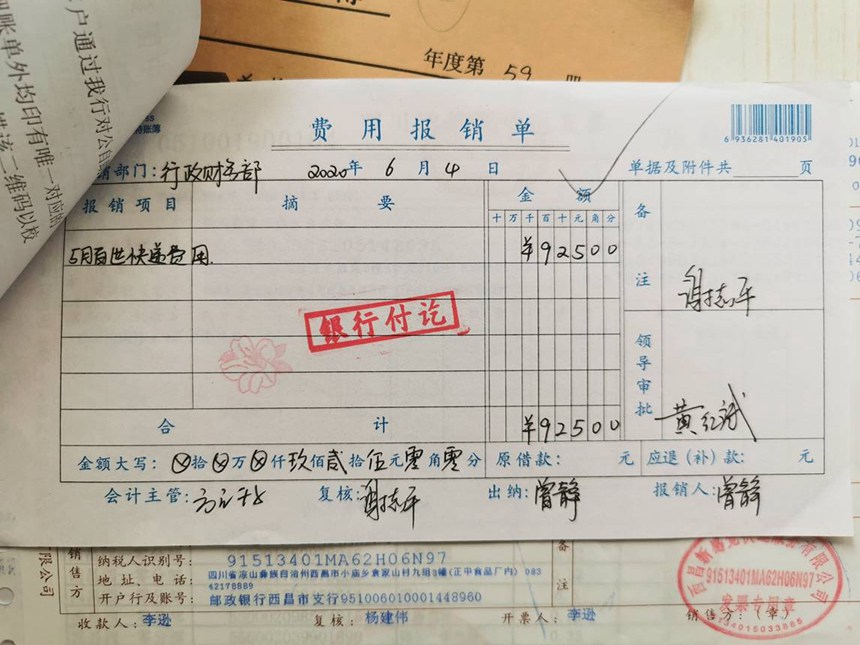 户通过我行对公
账单外均印有唯一对应的
二维码以校
年度第 59 册
费用报销单
6 936281 401905
销部门：行政财务部 2020年 6月 4日 单据及附件共 页
报销项目 摘要 金额 备注
十万千百十元角分
5月百世快递费用. ¥92500
谢志平
银行付讫
领导审批
黄红斌
合计 ¥92500
金额大写：⊗拾⊗万⊗仟玖佰贰拾伍元零角零分 原借款： 元 应退（补）款： 元
会计主管： 复核：谢志平 出纳：曾静 报销人：曾静
销售方
纳税人识别号： 91513401MA62H06N97
地址、电话： 四川省凉山彝族自治州西昌市小庙乡袁家山村九组3幢(正中食品厂内) 083
42178889
开户行及账号： 邮政银行西昌市支行951006010001448960
备注
收款人：李逊 复核：杨建伟 开票人：李逊 销售方：（章）
91513401MA62H06N97
发票专用章
有限公司